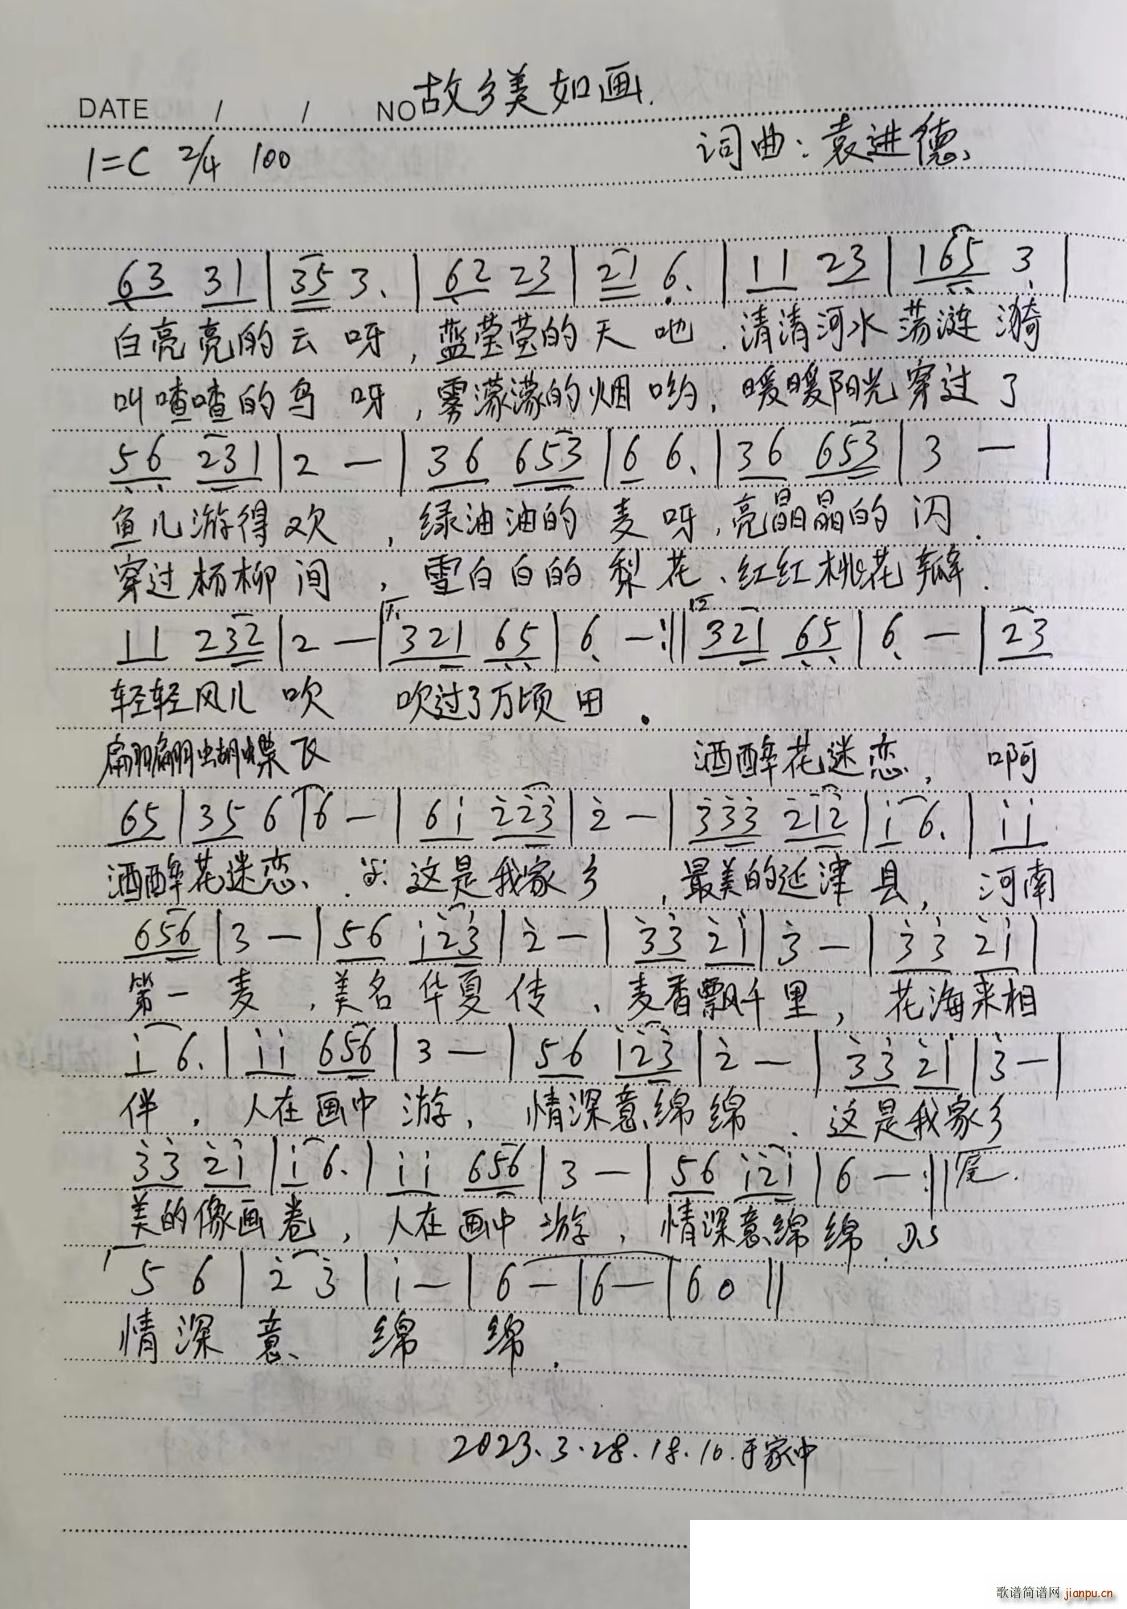 故乡美如画.
DATE / / NO
1=C 2/4 100 词曲:袁进德
63 31 | 35 3. | 62 23 | 21 6. | 11 23 | 165 3. |
白亮亮的云呀,蓝莹莹的天吔.清清河水荡涟漪
叫喳喳的鸟呀,雾濛濛的烟哟,暖暖阳光穿过了
56 231 | 2 — | 36 653 | 6 6. | 36 653 | 3 — |
鱼儿游得欢,绿油油的麦呀,亮晶晶的闪.
穿过杨柳间,雪白白的梨花、红红桃花瓣.
11 232 | 2 — | 321 65 | 6 — :|| 321 65 | 6 — | 23
轻轻风儿吹 吹过了万顷田.
翩翩蝴蝶飞 洒醉花迷恋, 啊
65 | 35 6 | 6 — | 6i 223 | 2 — | 333 212 | i 6. | ii
洒醉花迷恋、 这是我家乡,最美的延津县,河南
656 | 3 — | 56 i23 | 2 — | 33 2i | 3 — | 33 2i |
第一麦,美名华夏传、麦香飘千里,花海来相
i 6. | ii 656 | 3 — | 56 i23 | 2 — | 33 2i | 3 — |
伴,人在画中游,情深意绵绵.这是我家乡
33 2i | i 6. | ii 656 | 3 — | 56 i2i | 6 — :|| 尾.
美的像画卷,人在画中游,情深意绵绵. D.S
5 6 | 2 3 | i — | 6 — | 6 — | 6 0 ||
情深意绵绵.
2023.3.28.18.10.于家中
歌谱简谱网 jianpu.cn